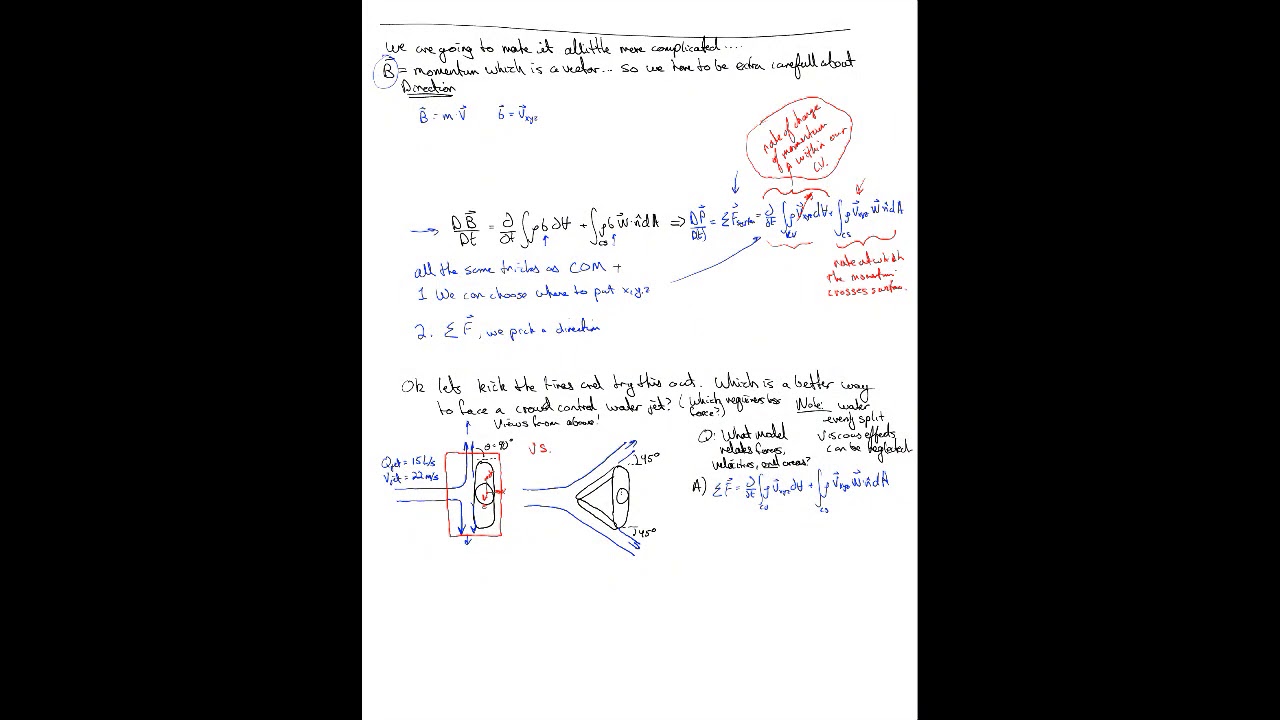 we are going to make it alittle more complicated....
B⃗ = momentum which is a vector... so we have to be extra carefull about
Direction
B⃗ = m·V⃗ b⃗ = V⃗xyz
rate of change
of momentum
within our
C.V.
DB⃗/Dt = ∂/∂t ∫ρb⃗ d∀ + ∫cs ρb⃗ W⃗·n̂dA ⇒ DP⃗/Dt) = ΣF⃗system = ∂/∂t ∫cv ρV⃗xyz d∀ + ∫cs ρV⃗xyz W⃗·n̂dA
rate at which
the momentum
crosses surface.
all the same tricks as COM +
1 We can choose where to put x,y,z
2. ΣF⃗, we pick a direction
Ok lets kick the tires and try this out. Which is a better way
to face a crowd control water jet? (Which requires less
force?)
Views from above!
Note: water
evenly split
viscous effects
can be neglected
Q: What model
relates forces,
velocities, and areas?
A) ΣF⃗ = ∂/∂t ∫cv ρV⃗xyz d∀ + ∫cs ρV⃗xyz W⃗·n̂dA
Qjet = 15 L/s
Vjet = 22 m/s
θ = 90°
VS.
45°
45°